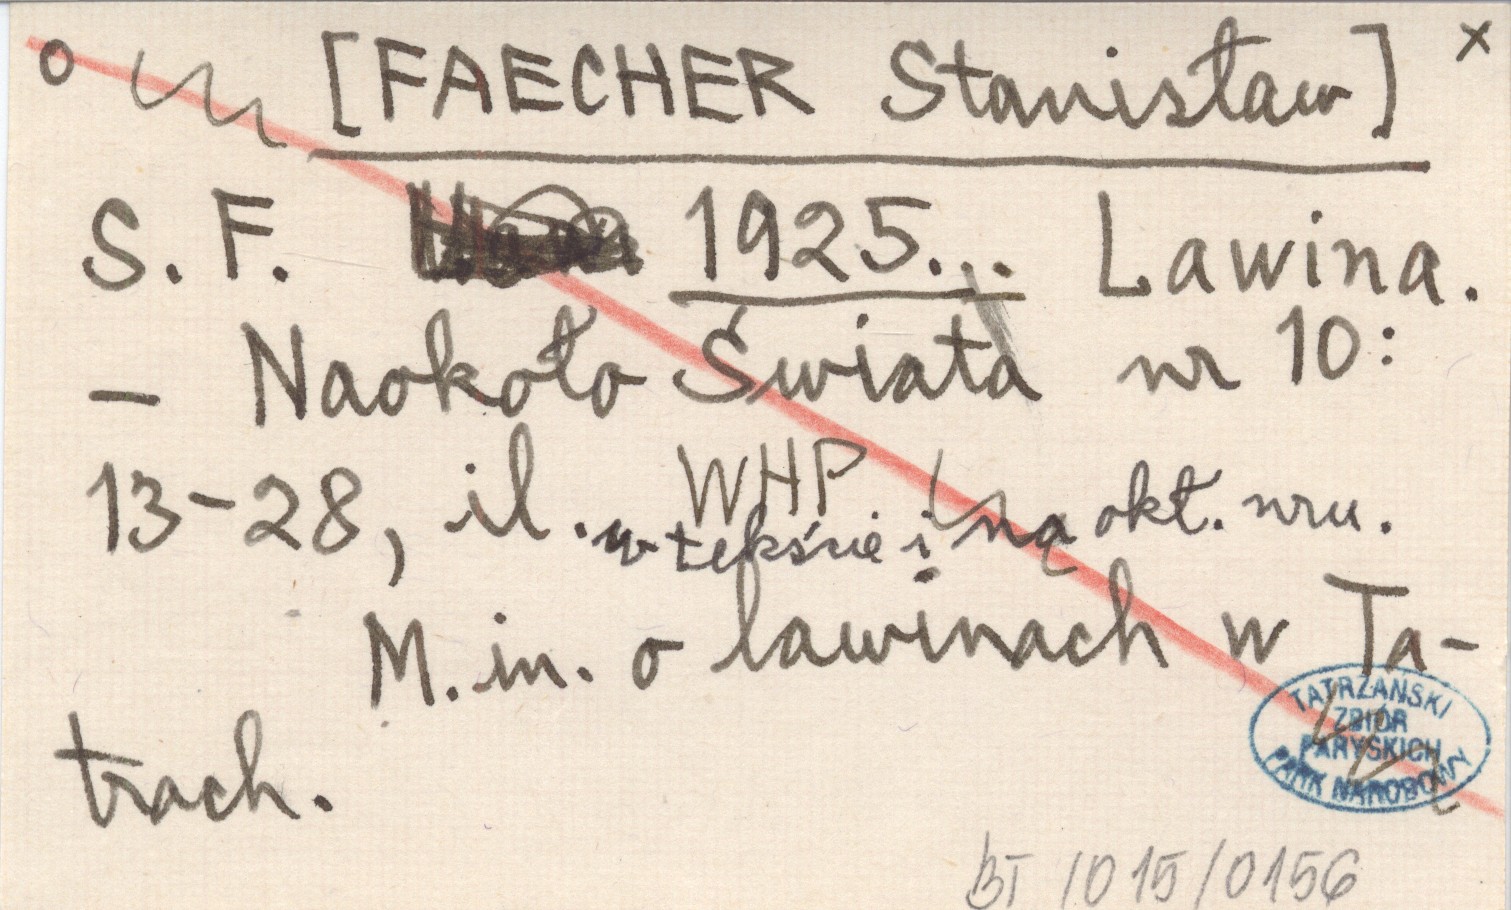 o [FAECHER Stanisław] x
S. F. 1925... Lawina.
– Naokoło Świata nr 10:
13-28, il. w tekście i na okł. nru.
WHP
M.in. o lawinach w Ta-
trach.
TATRZAŃSKI
ZBIÓR
PARYSKICH
PARK NARODOWY
BT /015/0156